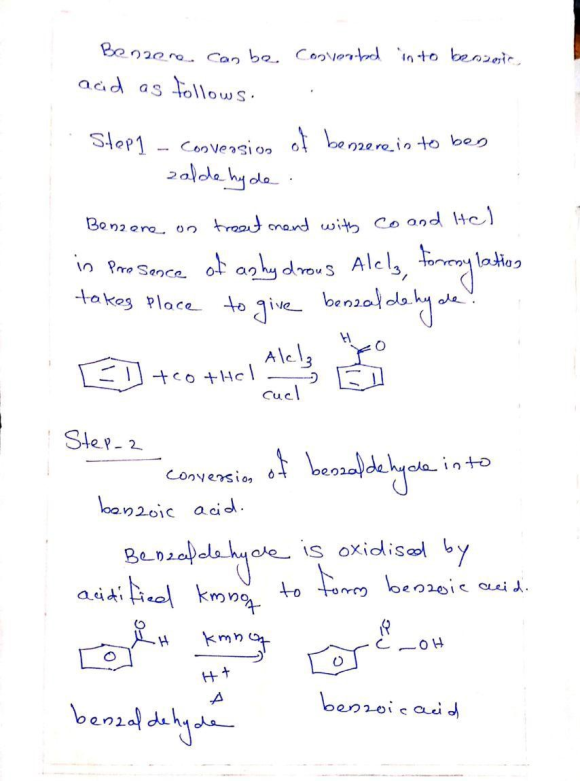 Benzene can be converted into benzoic
acid as follows.
Step1 - conversion of benzene in to ben
zaldehyde.
Benzene on treatment with co and Hcl
in presence of anhydrous Alcl3, formylation
takes place to give benzaldehyde.
+co +Hcl Alcl3 H O
cucl
Step-2
conversion of benzaldehyde into
benzoic acid.
Benzaldehyde is oxidised by
acidified kmno4 to form benzoic acid.
O H kmno4 O C -OH
H+
Δ
benzaldehyde benzoic acid